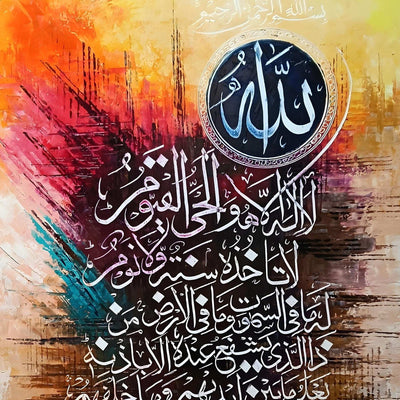 بسم الله الرحمن الرحيم
الله
لا اله الا هو الحى القيوم
لا تاخذه سنة ولا نوم
له ما فى السموت وما فى الارض من
ذا الذى يشفع عنده الا باذنه
يعلم ما بين ايديهم وما خلفهم